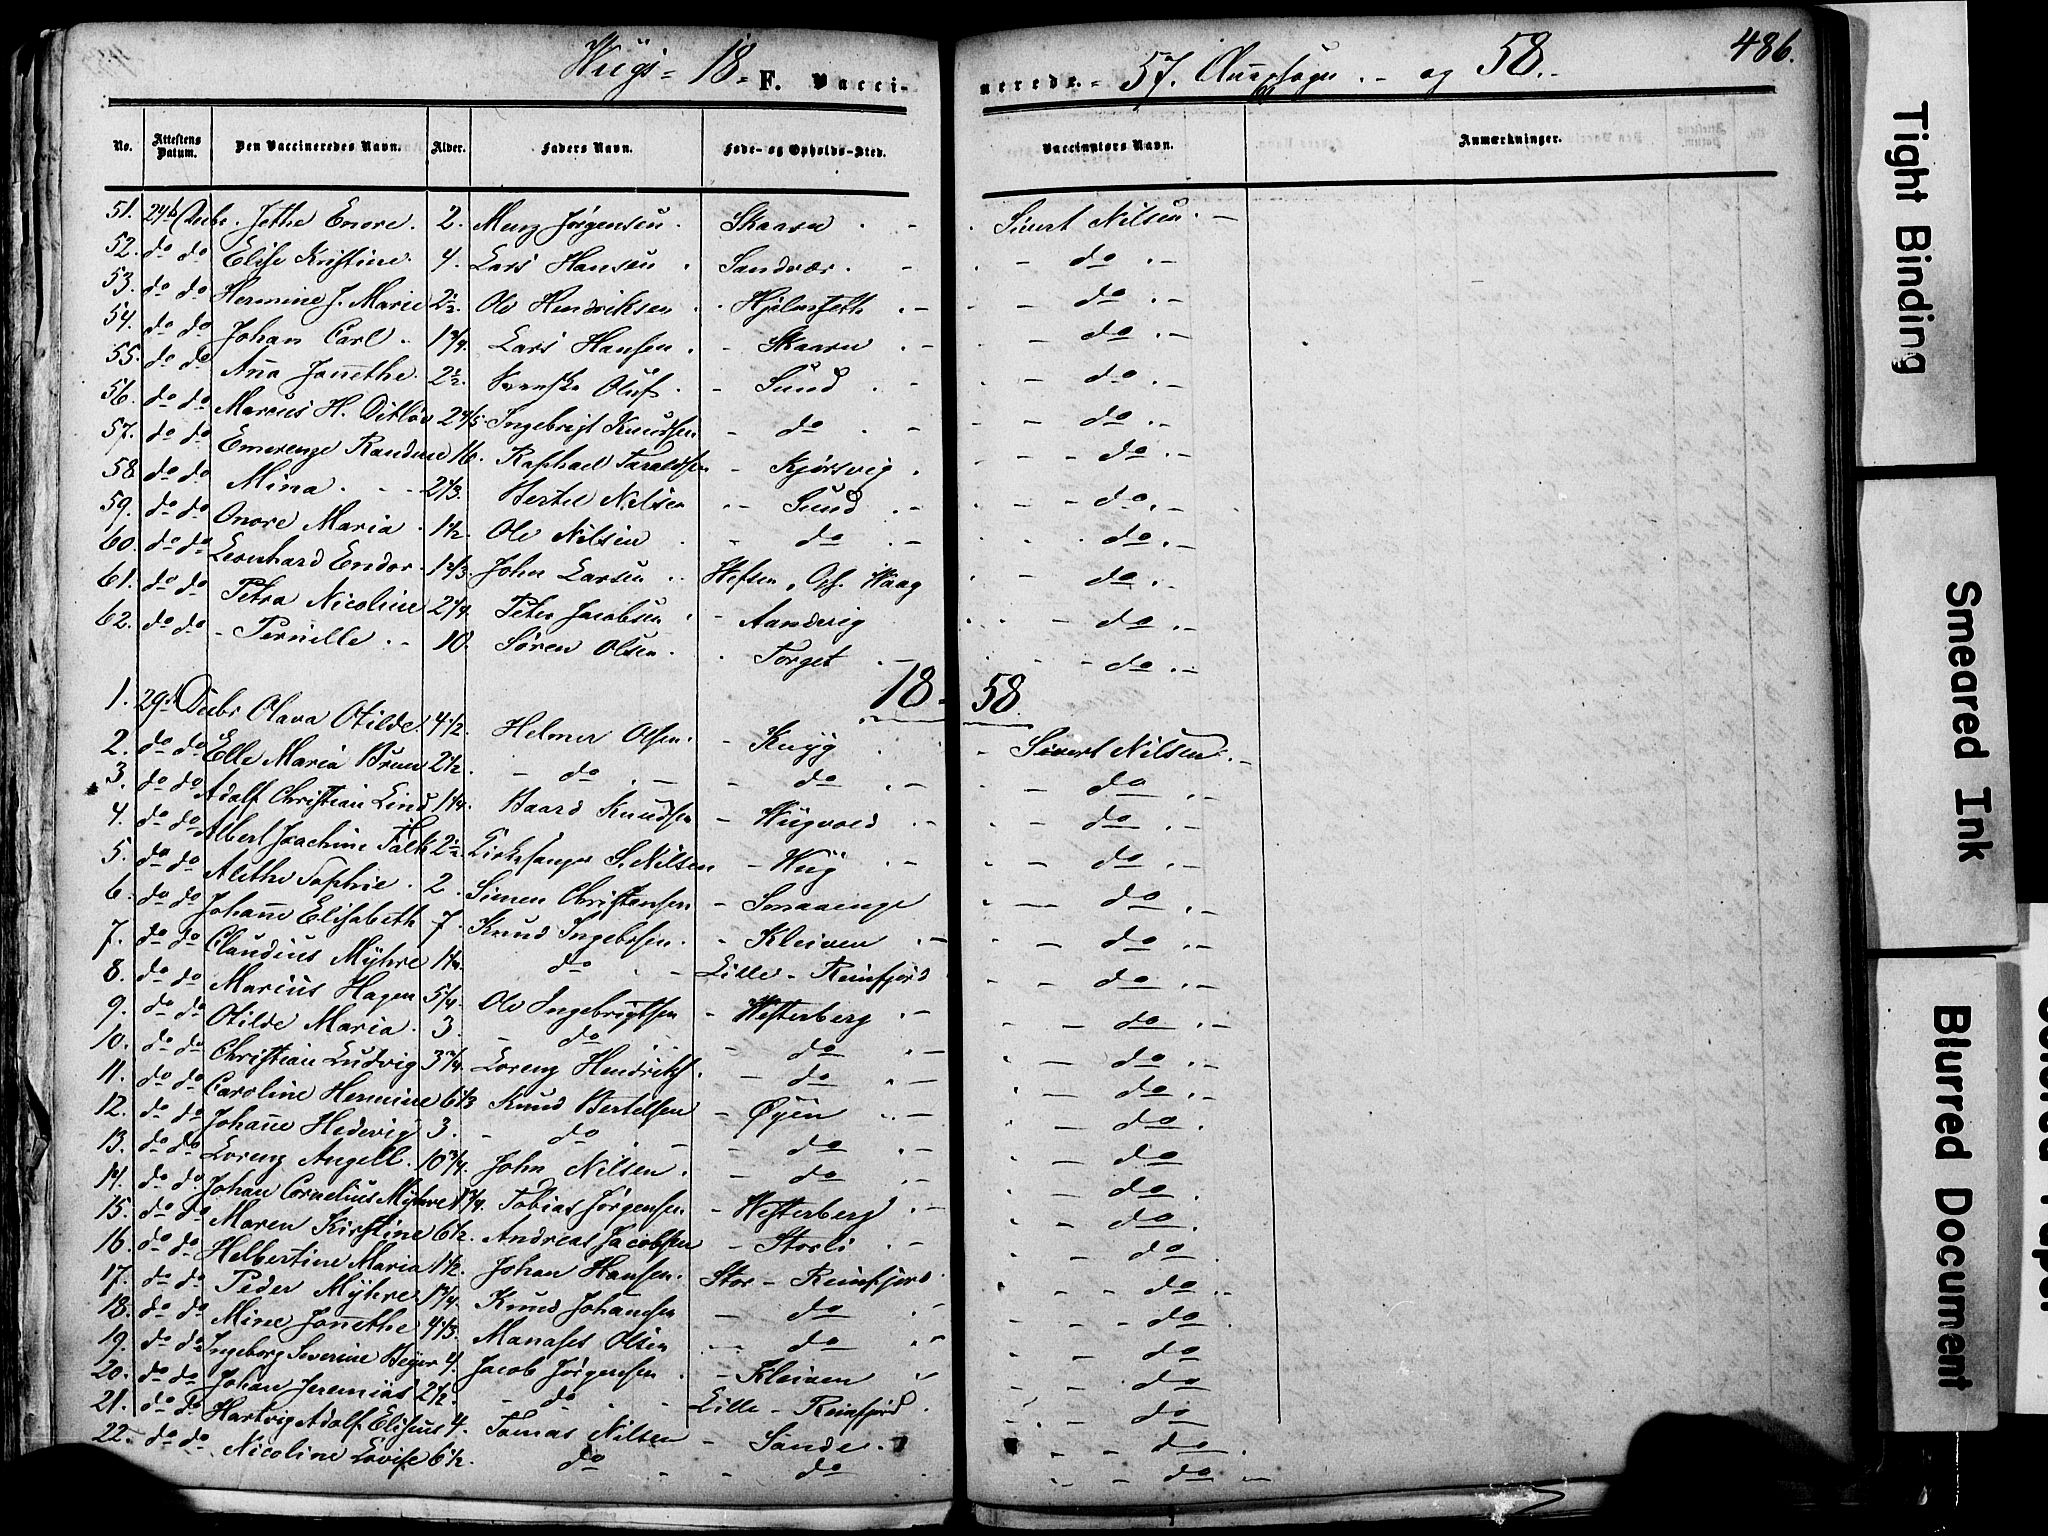 Wiigs - 18 - F. Vacci-nerede. - 57. Annexsogn .- og 58.-
486.
No. Attestens Datum. Den Vaccineredes Navn. Alder. Faders Navn. Føde- og Opholds-Sted. Vaccinators Navn. Anmærkninger.
51. 29de Decbr. Jethe Enore. 2. Jørgensen. Skaaren Sivert Nilsen.
52. do do Elise Kristine. 4. Lars Hansen Sandvær. do
53. do do Hermine J. Marie 2½ Ole Hendriksen Hjelmseth do
54. do do Johan Carl 1¾. Lars Hansen. Skaaren do
55. do do Ana Jonethe. 2½. Svenske Oluf. Sund do
56. do do Marius H. Ditlov 2 4/5 Ingebrigt Knudsen do do
57. do do Emerenze Randine 16. Raphael Taraldsen Kjørsvig do
58 do do Mina 2 1/3. Bertel Nilsen Sund do
59. do do Onore Maria 1½. Ole Nilsen do do
60. do do Leonhard Endor. 1 1/3. John Larsen Hefsen, Waag do
61. do do Petra Nicoline 2¼. Peter Jacobsen Aandvig do
62. do do Pernille 10. Søren Olsen. Torget do
18-58.
1. 29de Decbr Olava Otilde 4½ Helmer Olsen. Sivert Nilsen
2. do do Elle Maria Bruun 2½. do do do
3. do do Adolf Christian Lind 1¼. Baard Knudsen Wiigvold do
4. do do Albert Joachim Falk 2½ Kirkesanger S. Nilsen Wiig do
5. do do Alethe Sophie. 2. Simen Christensen Smaaenge do
6. do do Johane Elisabeth 7 Knud Ingebrsen. Kleiven do
7. do do Claudius Myhre 1¼. do Lille-Reinfjord do
8. do do Marius Hagen 5/4. Ole Ingebrigtsen Westerberg do
9. do do Otilde Maria. 3. do do do
10. do do Christian Ludvig 3¾. Lorenz Hendriks. do do
11. do do Caroline Hermine 6 1/3 Knud Bertelsen Øyen do
12. do do Johane Hedevig 3. do do do
13. do do Lorenz Angell. 10¾. John Nilsen. do do
14. do do Johan Cornelius Myhre 1¾. Tobias Jørgensen Westerberg do
15. do do Maren Kirstine 6½. Andreas Jacobsen Storli do
16. do do Helbertine Maria 1½. Johan Hansen. Stor-Reinfjord do
17. do do Peder Myhre 1¼. Knud Johansen do do
18. do do Mine Jonethe 4 1/3. Manases Olsen do do
19. do do Ingeborg Severine Beyer 4. Jacob Jørgensen Kleiven do
20. do do Johan Jeremias 2½. do Lille-Reinfjord do
21. do do Hartvig Adolf Eliseus 4. Tomas Nilsen Sande do
22. do do Nicoline Lovise 6½. do do do
Tight Binding
Smeared Ink
Blurred Document